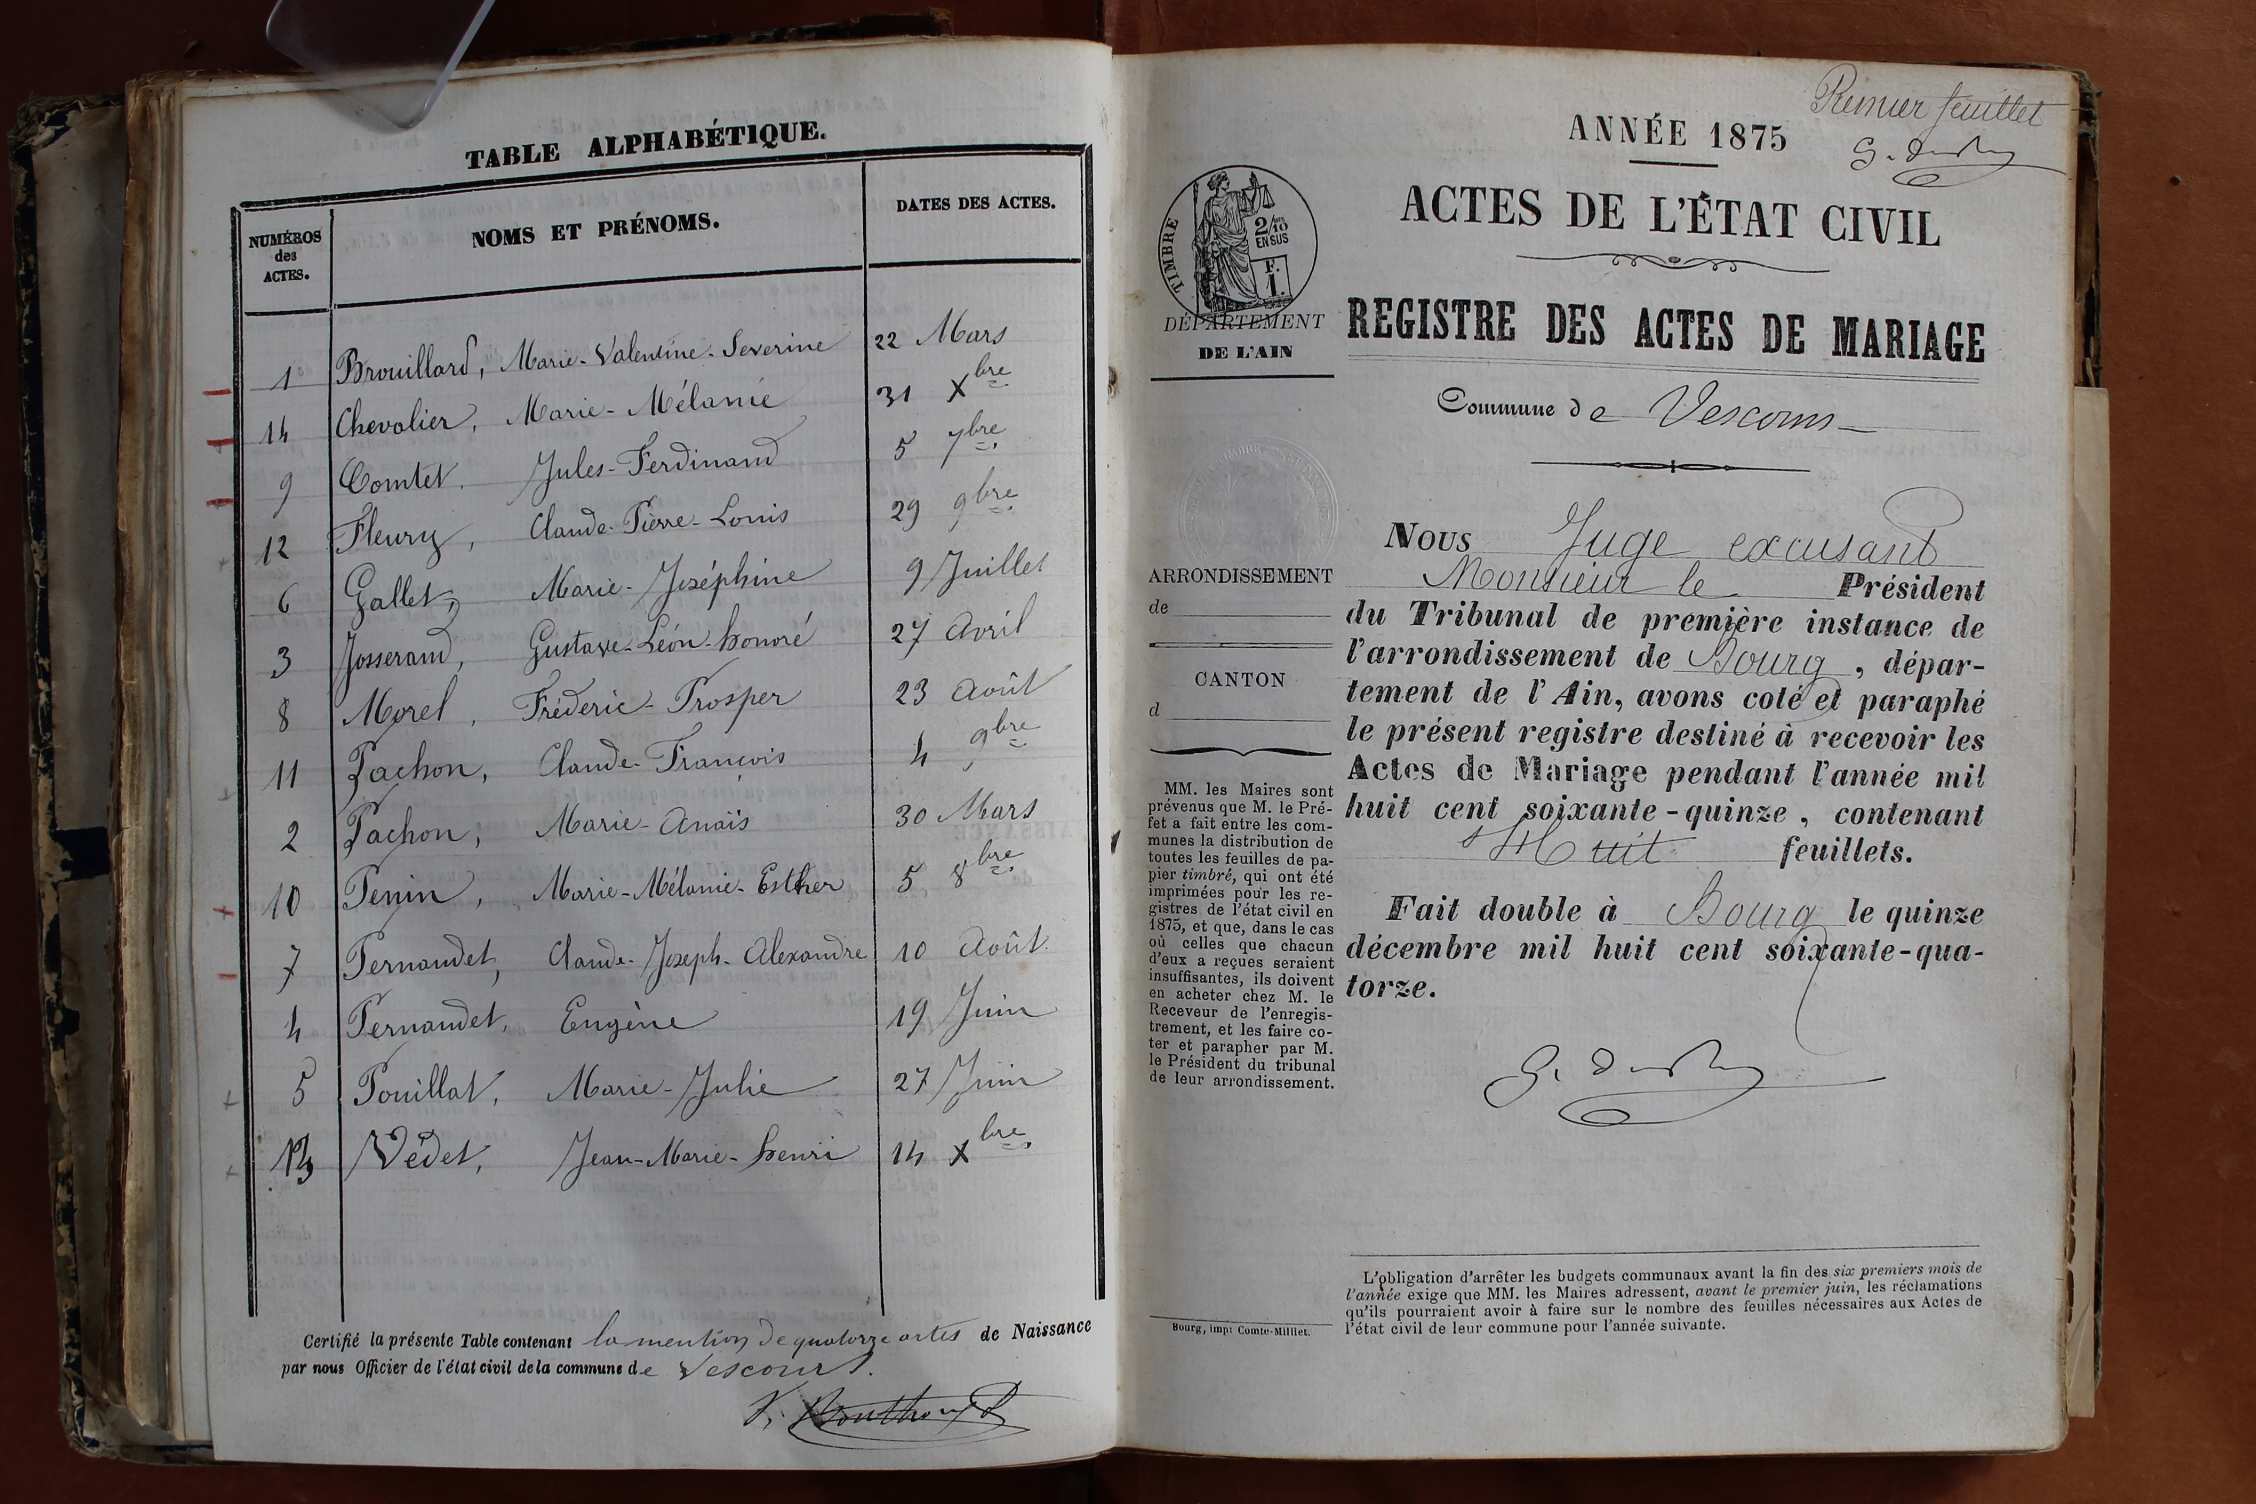 TABLE ALPHABÉTIQUE.
NUMÉROS
des
ACTES.
NOMS ET PRÉNOMS.
DATES DES ACTES.
1 Brouillard, Marie-Valentine-Severine 22 Mars
14 Chevalier, Marie-Mélanie 31 Xbre
9 Comtet, Jules-Ferdinand 5 7bre
12 Fleury, Claude-Pierre-Louis 29 9bre
6 Gallet, Marie-Joséphine 9 Juillet
3 Josserand, Gustave-Léon-honoré 27 avril
8 Morel, Fréderic-Prosper 23 août
11 Pachon, Claude-François 4 9bre
2 Pachon, Marie-Anaïs 30 Mars
10 Penin, Marie-Mélanie-Esther 5 8bre
7 Pernaudet, Claude-Joseph-Alexandre 10 Août
4 Pernaudet, Eugène 19 Juin
5 Pouillat, Marie-Julie 27 Juin
13 Védet, Jean-Marie-henri 14 Xbre
Certifié la présente Table contenant la mention de quatorze actes de Naissance
par nous Officier de l'état civil de la commune de Vescours.
Premier feuillet
ANNÉE 1875
ACTES DE L'ÉTAT CIVIL
TIMBRE
2/10
EN SUS
F.
1.
DÉPARTEMENT
DE L'AIN
REGISTRE DES ACTES DE MARIAGE
Commune de Vescours
ARRONDISSEMENT
de
CANTON
d
MM. les Maires sont
prévenus que M. le Pré-
fet a fait entre les com-
munes la distribution de
toutes les feuilles de pa-
pier timbré, qui ont été
imprimées pour les re-
gistres de l'état civil en
1875, et que, dans le cas
où celles que chacun
d'eux a reçues seraient
insuffisantes, ils doivent
en acheter chez M. le
Receveur de l'enregis-
trement, et les faire co-
ter et parapher par M.
le Président du tribunal
de leur arrondissement.
Nous Juge excusant
Monsieur le Président
du Tribunal de première instance de
l'arrondissement de Bourg, dépar-
tement de l'Ain, avons coté et paraphé
le présent registre destiné à recevoir les
Actes de Mariage pendant l'année mil
huit cent soixante-quinze, contenant
Huit feuillets.
Fait double à Bourg le quinze
décembre mil huit cent soixante-qua-
torze.
L'obligation d'arrêter les budgets communaux avant la fin des six premiers mois de
l'année exige que MM. les Maires adressent, avant le premier juin, les réclamations
qu'ils pourraient avoir à faire sur le nombre des feuilles nécessaires aux Actes de
l'état civil de leur commune pour l'année suivante.
Bourg, impr Comte-Milliet.